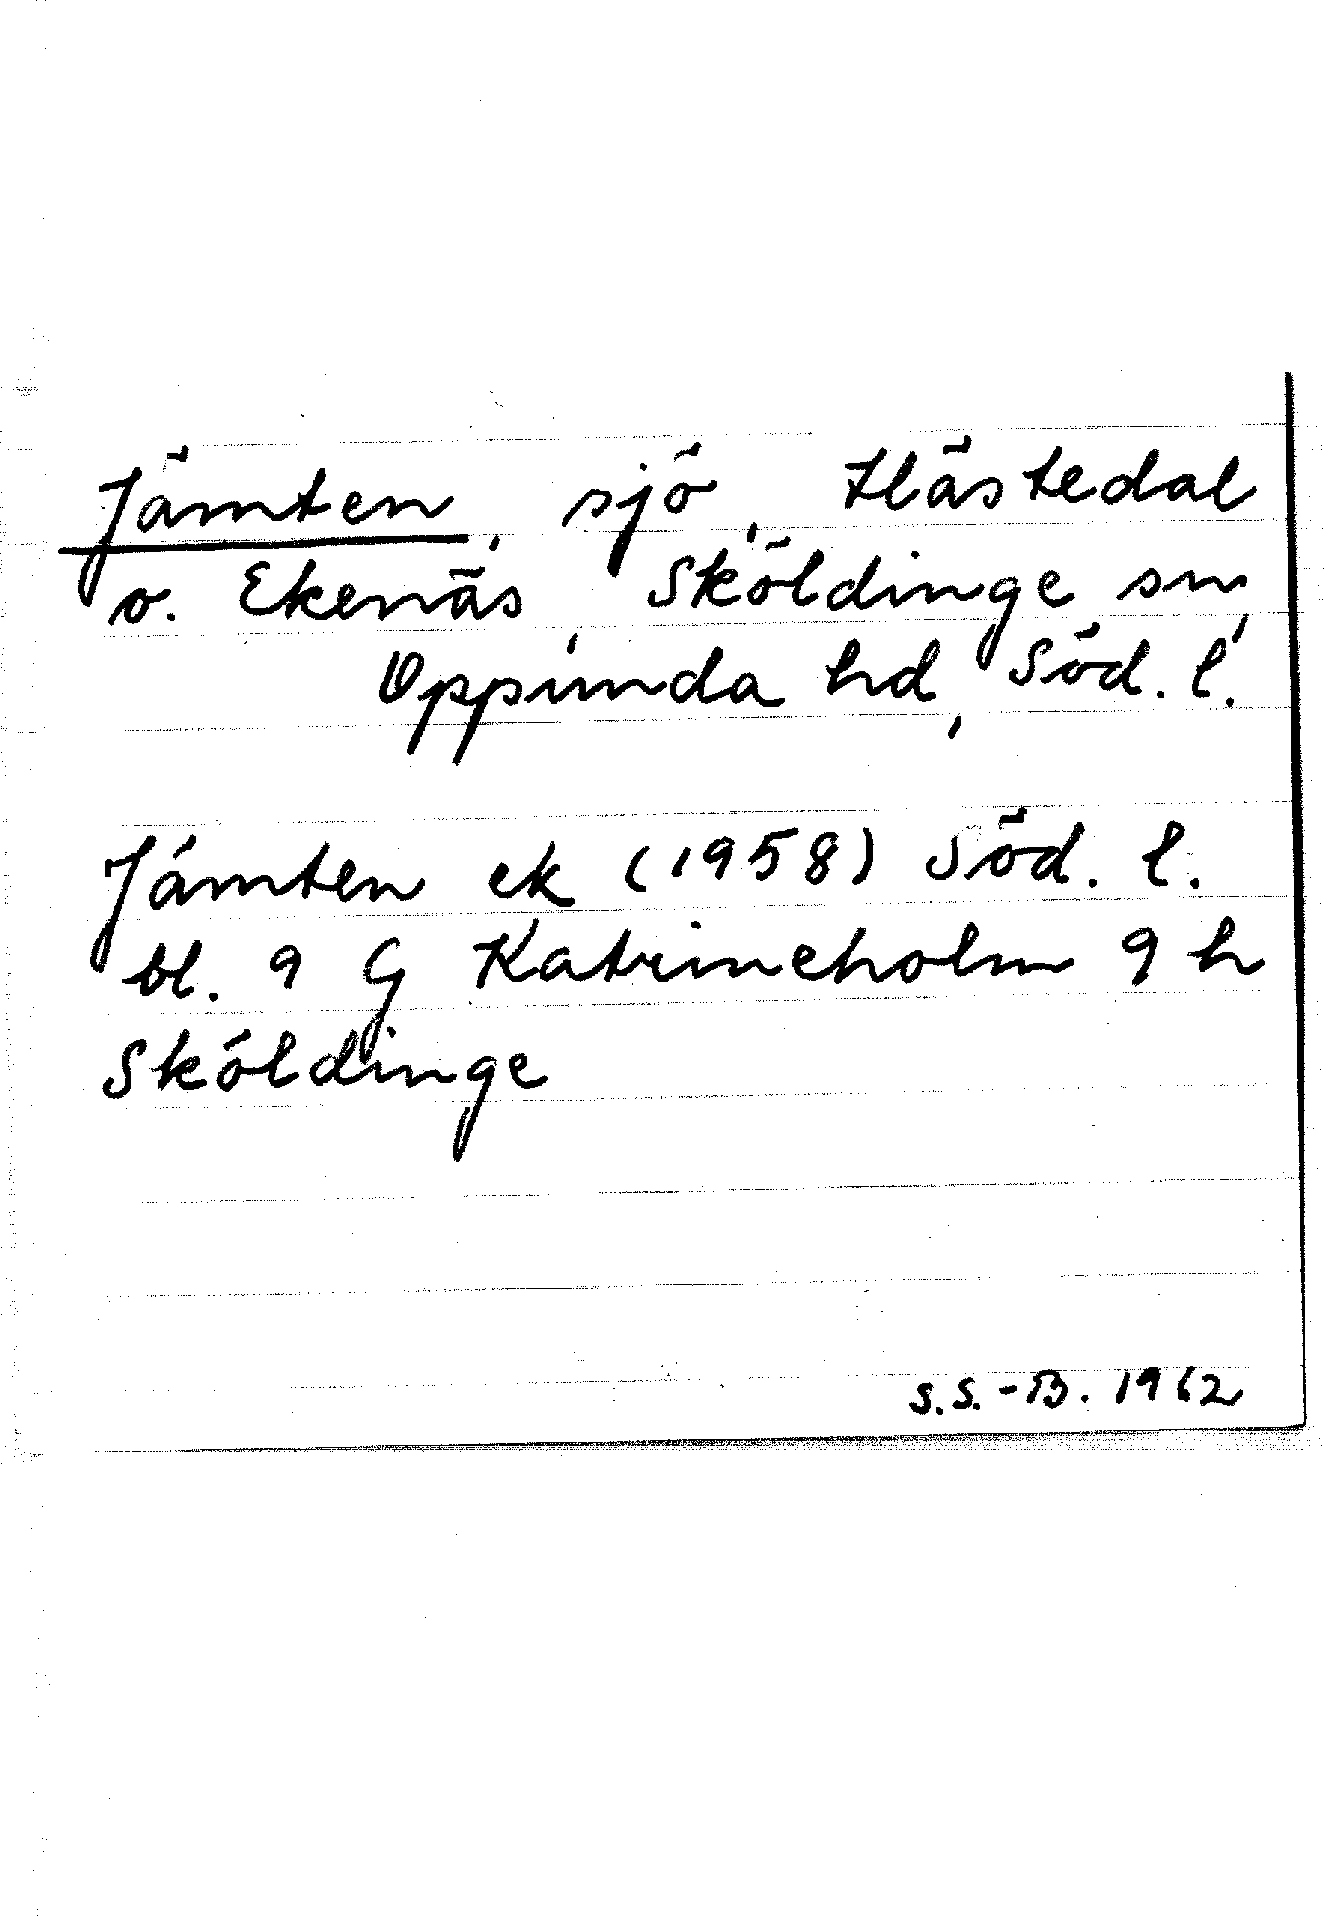 Jämten, sjö, Hästedal
o. Ekenäs, Sköldinge sn,
Oppunda hd, Söd. l.
Jämten ek (1958) Söd. l.
bl. 9 G Katrineholm 9 h
Sköldinge
S.S.-B. 1962